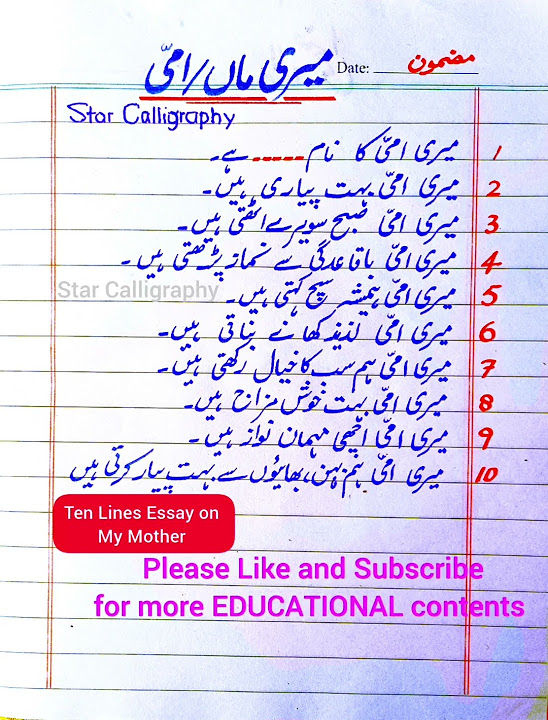 مضمون
Date:
میری ماں/امیّ
Star Calligraphy
1 میری امیّ کا نام ----- ہے۔
2 میری امیّ بہت پیاری ہیں۔
3 میری امیّ صبح سویرے اٹھتی ہیں۔
4 میری امیّ باقاعدگی سے نماز پڑھتی ہیں۔
5 میری امیّ ہمیشہ سچ کہتی ہیں۔
Star Calligraphy
6 میری امیّ لذیذ کھانے بناتی ہیں۔
7 میری امیّ ہم سب کا خیال رکھتی ہیں۔
8 میری امیّ بہت خوش مزاج ہیں۔
9 میری امیّ اچھی مہمان نواز ہیں۔
10 میری امیّ ہم بہن، بھائیوں سے بہت پیار کرتی ہیں
Ten Lines Essay on
My Mother
Please Like and Subscribe
for more EDUCATIONAL contents